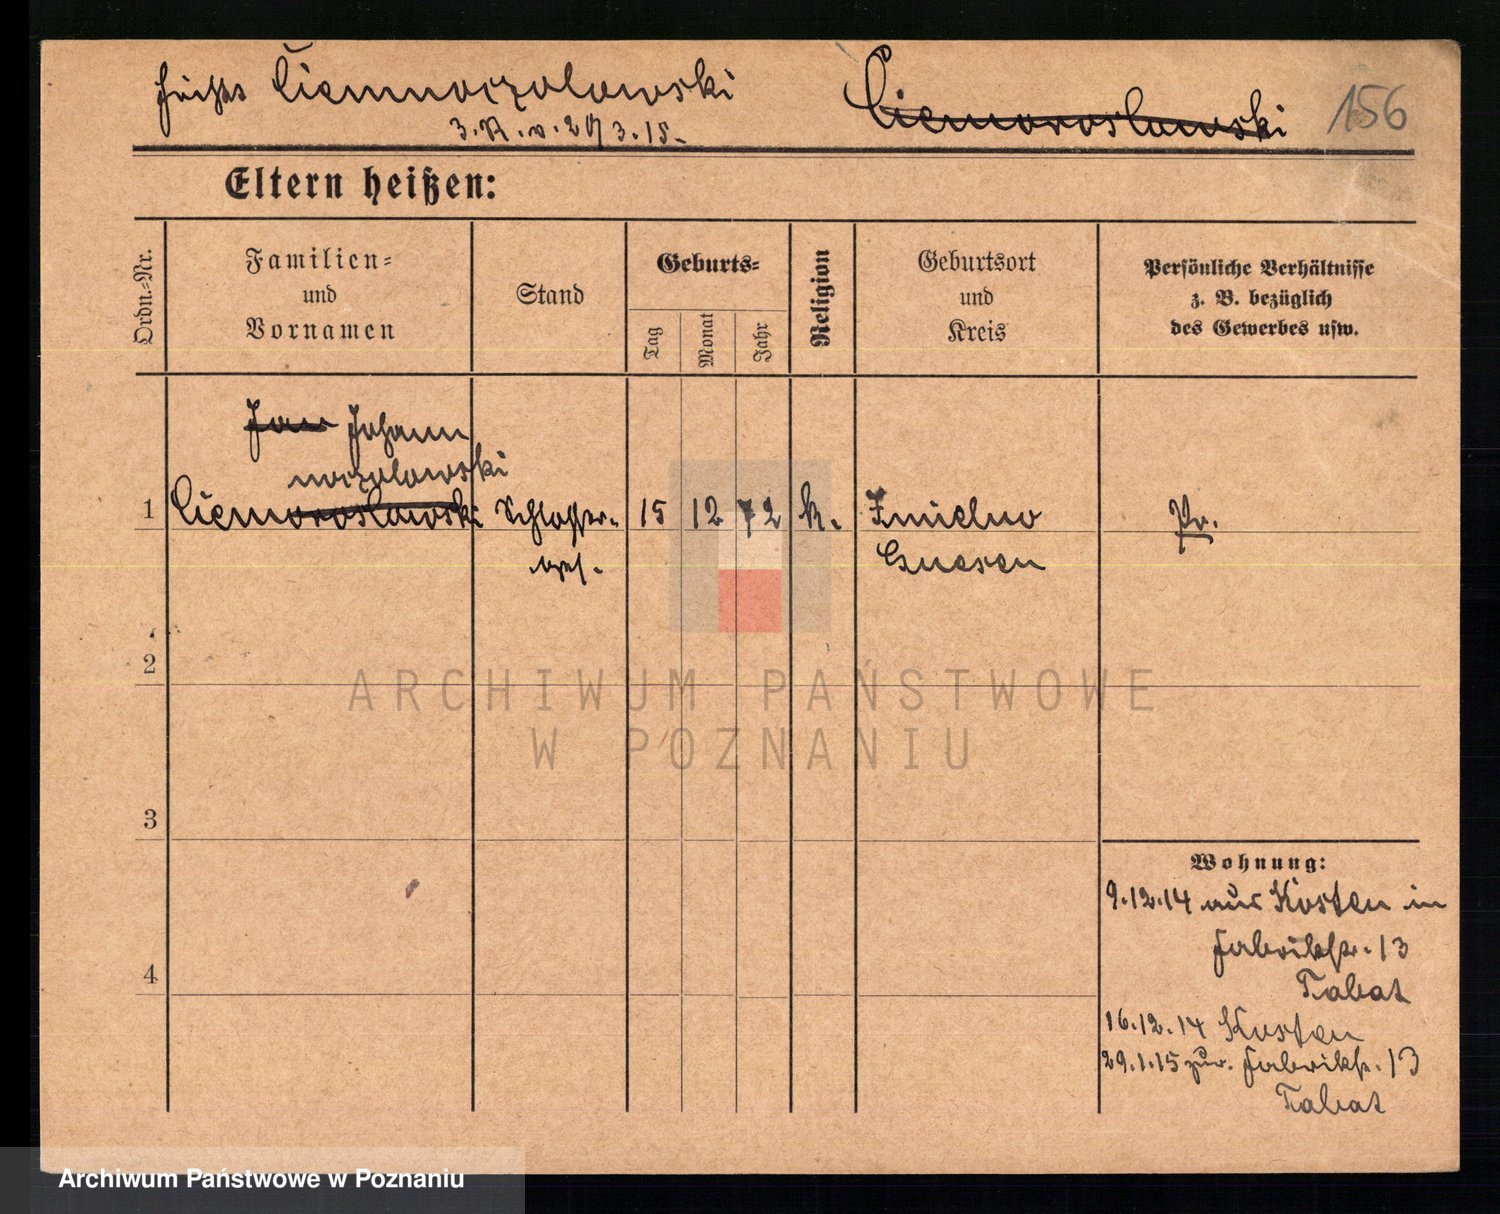 Ciemnoczolowski
Ciemoroslawski
156
3. R. v. 29/3.15.
Eltern heißen:
Ordn.-Nr.
Familien-
und
Vornamen
Stand
Geburts-
Tag
Monat
Jahr
Religion
Geburtsort
und
Kreis
Persönliche Verhältnisse
z. B. bezüglich
des Gewerbes usw.
Jan Johann
noczolowski
1 Ciemoroslawski Schlosser- 15 12 72 k. Imielno Pr.
ges. Gnesen
2
3
4
Wohnung:
9.12.14 aus Kosten in
Fabrikstr. 13
Tabat
16.12.14 Kosten
29.1.15 zur. Fabrikstr. 13
Tabat
ARCHIWUM PAŃSTWOWE
W POZNANIU
Archiwum Państwowe w Poznaniu